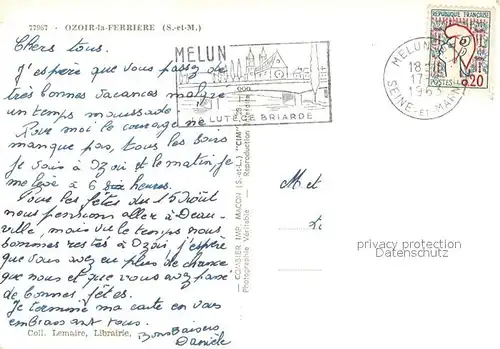 77967 - OZOIR-la-FERRIÈRE (S.-et-M.)
Chers tous.
J'espère que vous passez de
très bonnes vacances malgré
un temps maussade.
Pour moi le courage ne
manque pas, tous les soirs
je suis à Ozoir et le matin je
me lève à 6 heures.
Pour les fêtes du 15 Août
nous pensions aller à Deau-
ville, mais vu le temps nous
sommes restés à Ozoir, j'espère
que vous avez eu plus de chance
que nous et que vous avez passé
de bonnes fêtes.
Je termine ma carte en vous
embrassant tous.
Bons Baisers
Danièle
Coll. Lemaire, Librairie,
MELUN
LUTE BRIARDE
COMBIER IMP. MACON (S.-et-L.) "CIM"
Photographie Véritable - Reproduction
MELUN
18
17
1963
SEINE-ET-MARNE
REPUBLIQUE FRANÇAISE
POSTES
0,20
M et
protection privacy
Datenschutz